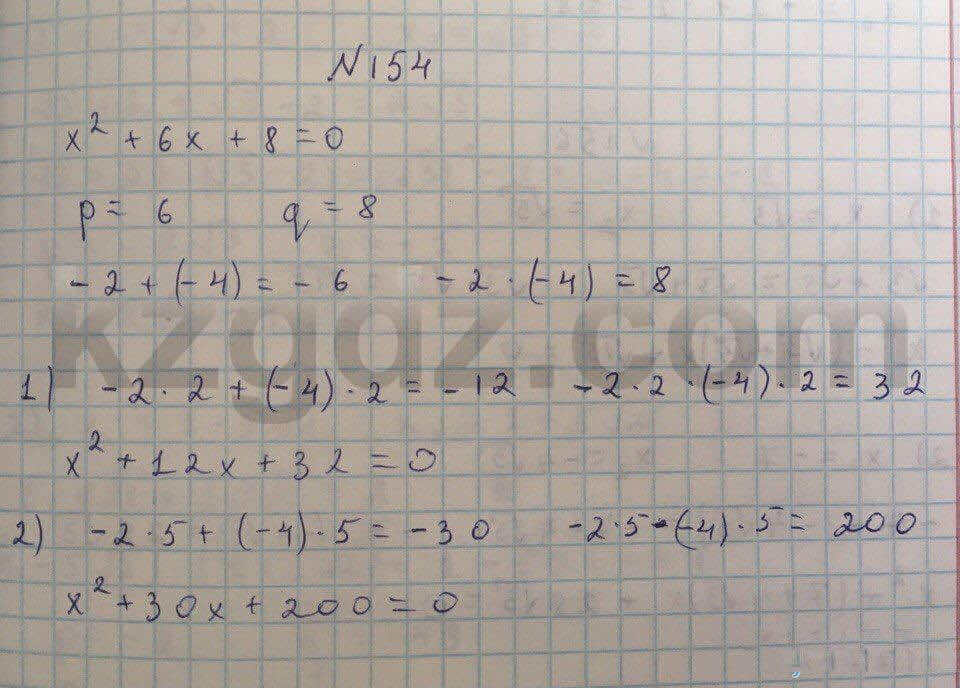 N154
x² + 6x + 8 = 0
p = 6 q = 8
- 2 + (- 4) = - 6 - 2 · (- 4) = 8
kzgdz.com
1) - 2 · 2 + (- 4) · 2 = - 12 - 2 · 2 · (- 4) · 2 = 32
x² + 12x + 32 = 0
2) - 2 · 5 + (- 4) · 5 = - 30 - 2 · 5 - (- 4) · 5 = 200
x² + 30x + 200 = 0